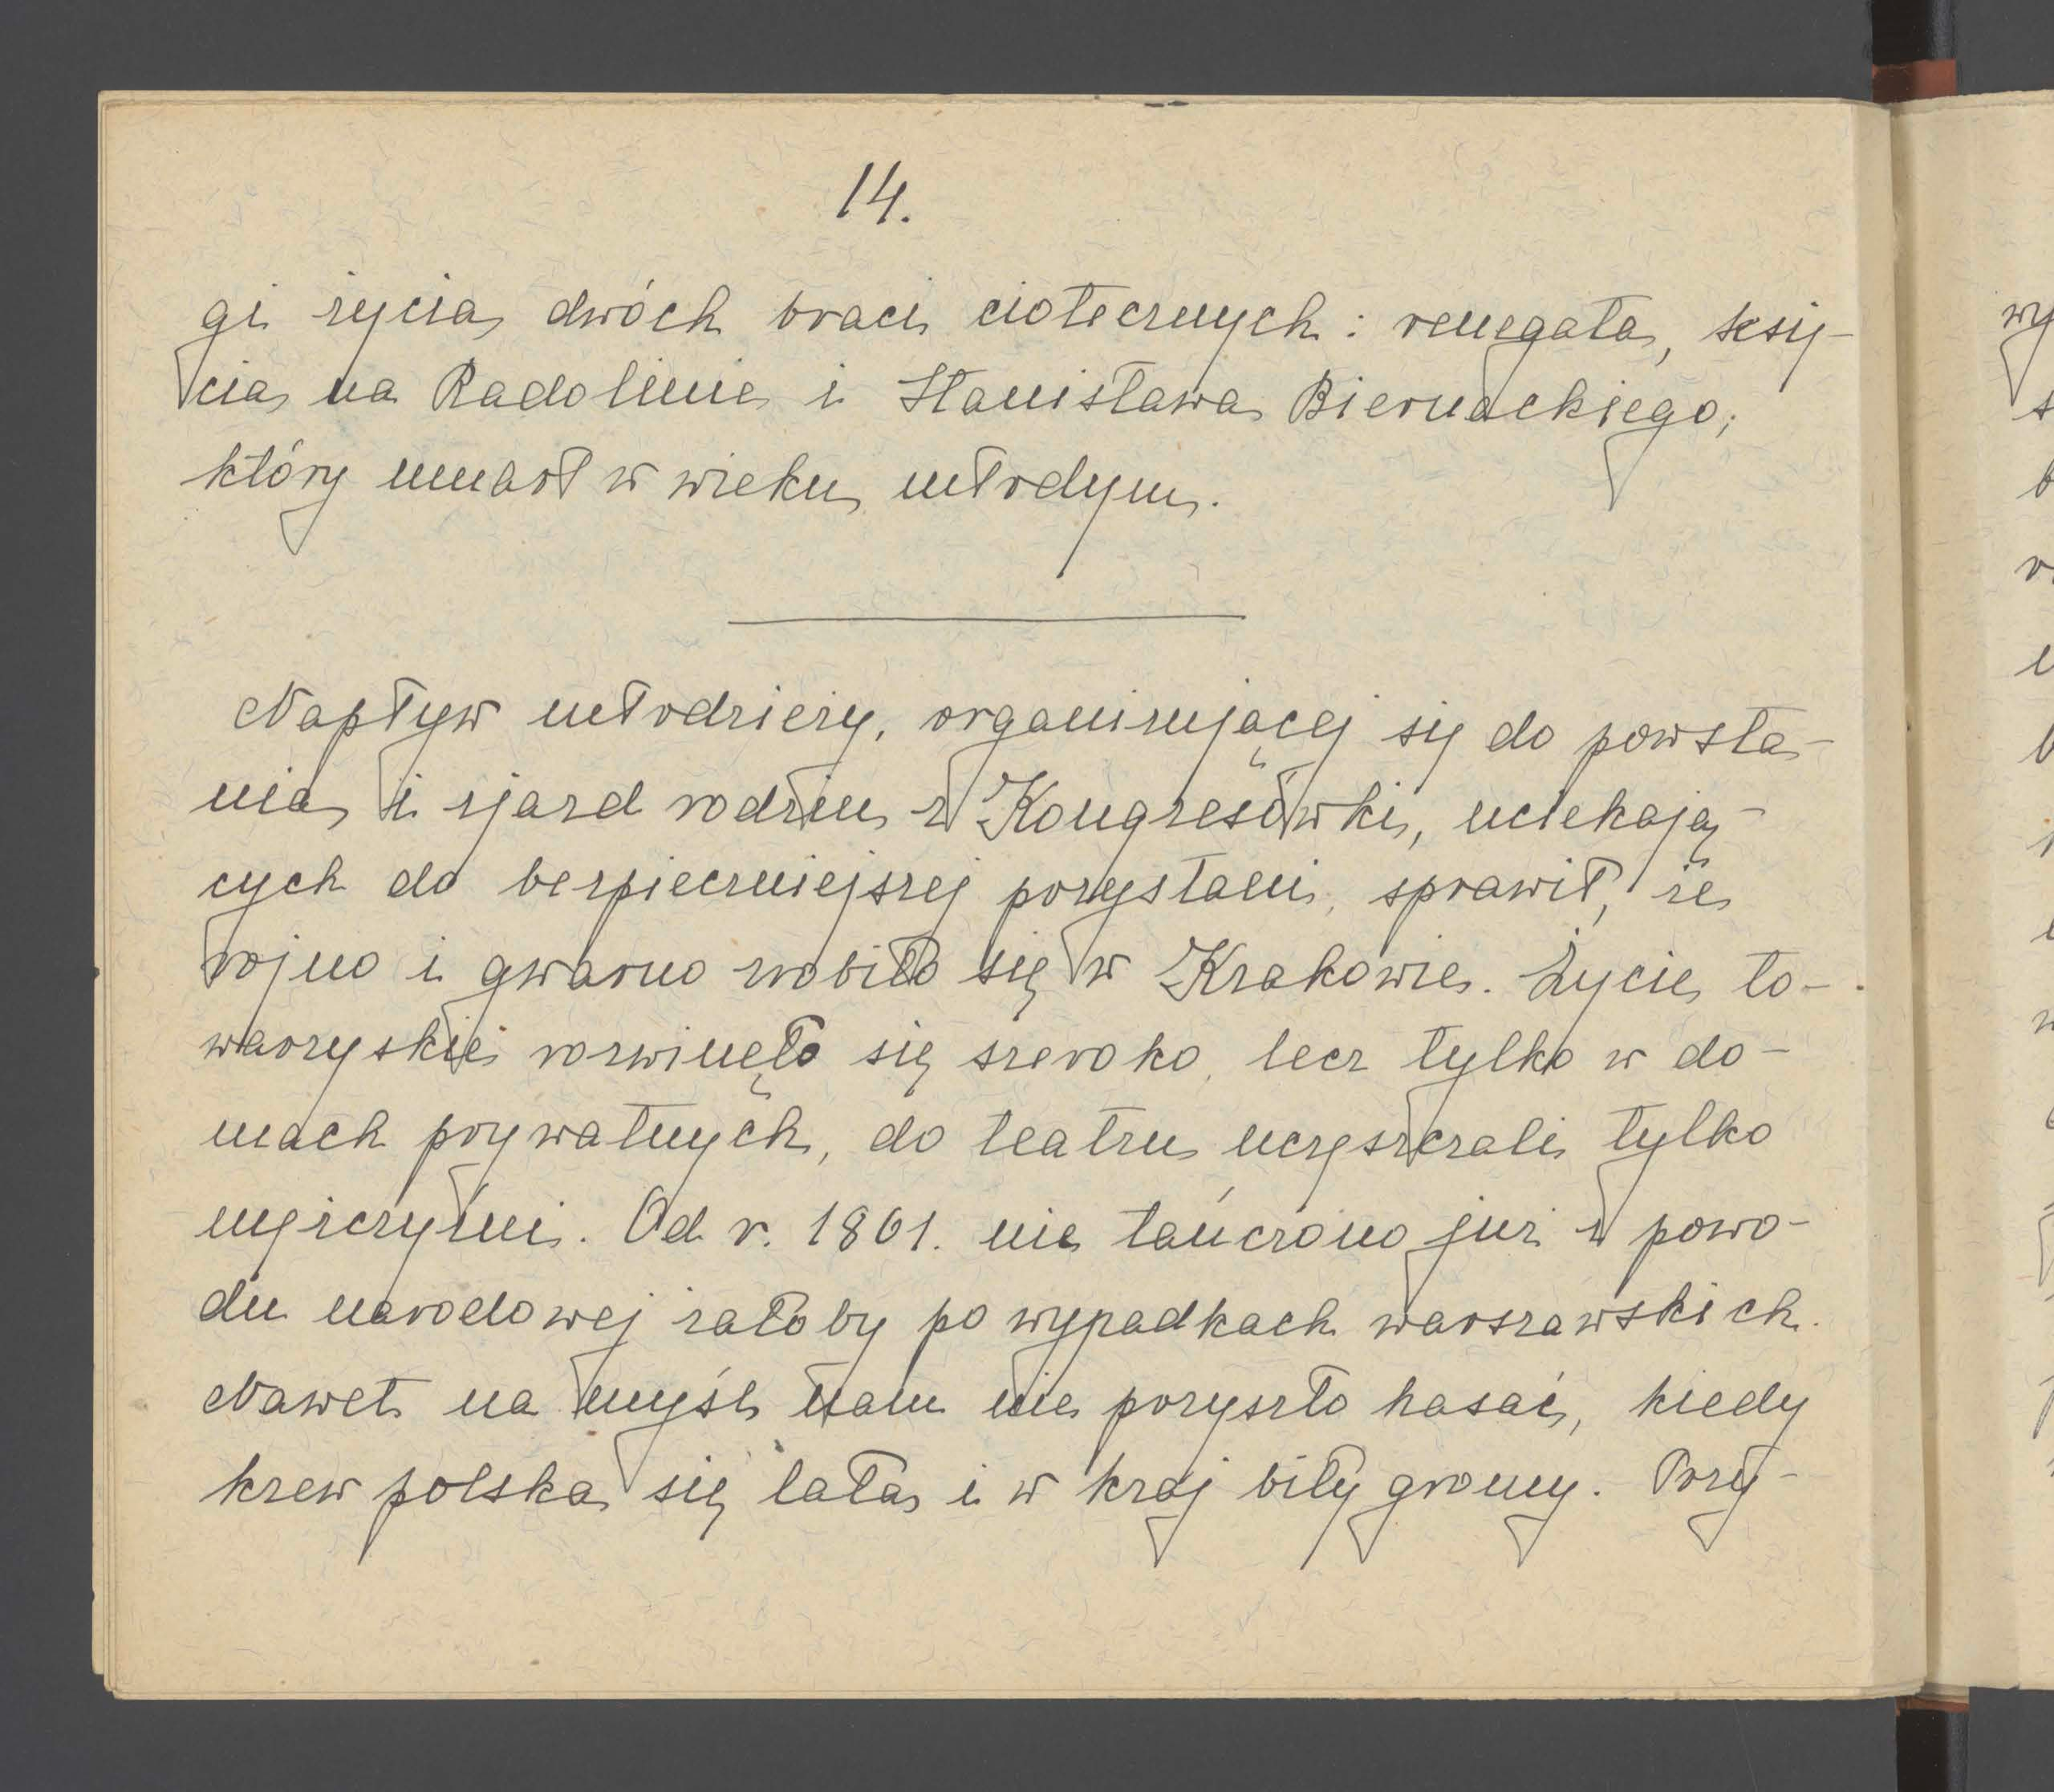 14.
gi życia dwóch braci ciotecznych: renegata, księ-
cia na Radolinie i Stanisława Biernackiego,
który umarł w wieku młodym.
Napływ młodzieży, organizującej się do powsta-
nia i zjazd rodzin z Kongresówki, uciekają-
cych do bezpieczniejszej przystani, sprawił, że
rojno i gwarno zrobiło się w Krakowie. Życie to-
warzyskie rozwinęło się szeroko, lecz tylko w do-
mach prywatnych, do teatru uczęszczali tylko
mężczyźni. Od r. 1861. nie tańczono już z powo-
du narodowej żałoby po wypadkach warszawskich.
Nawet na myśl nam nie przyszło hasać, kiedy
krew polska się lała i w kraj biły gromy. Przy-